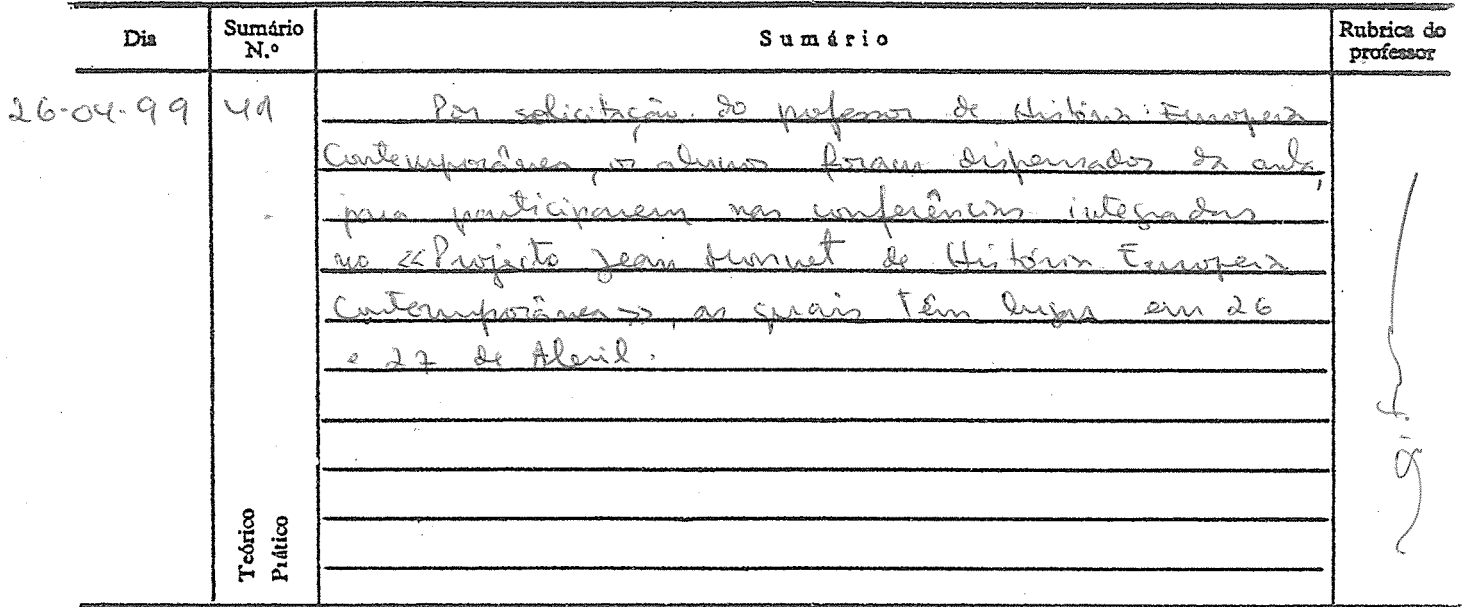 Dia Sumário N.º Sumário Rubrica do professor
26-04-99 41 Por solicitação do professor de História Europeia
Contemporânea, os alunos foram dispensados da aula,
para participarem nas conferências integradas
no «Projecto Jean Monnet de História Europeia
Contemporânea», as quais têm lugar em 26
e 27 de Abril.
Teórico
Prático